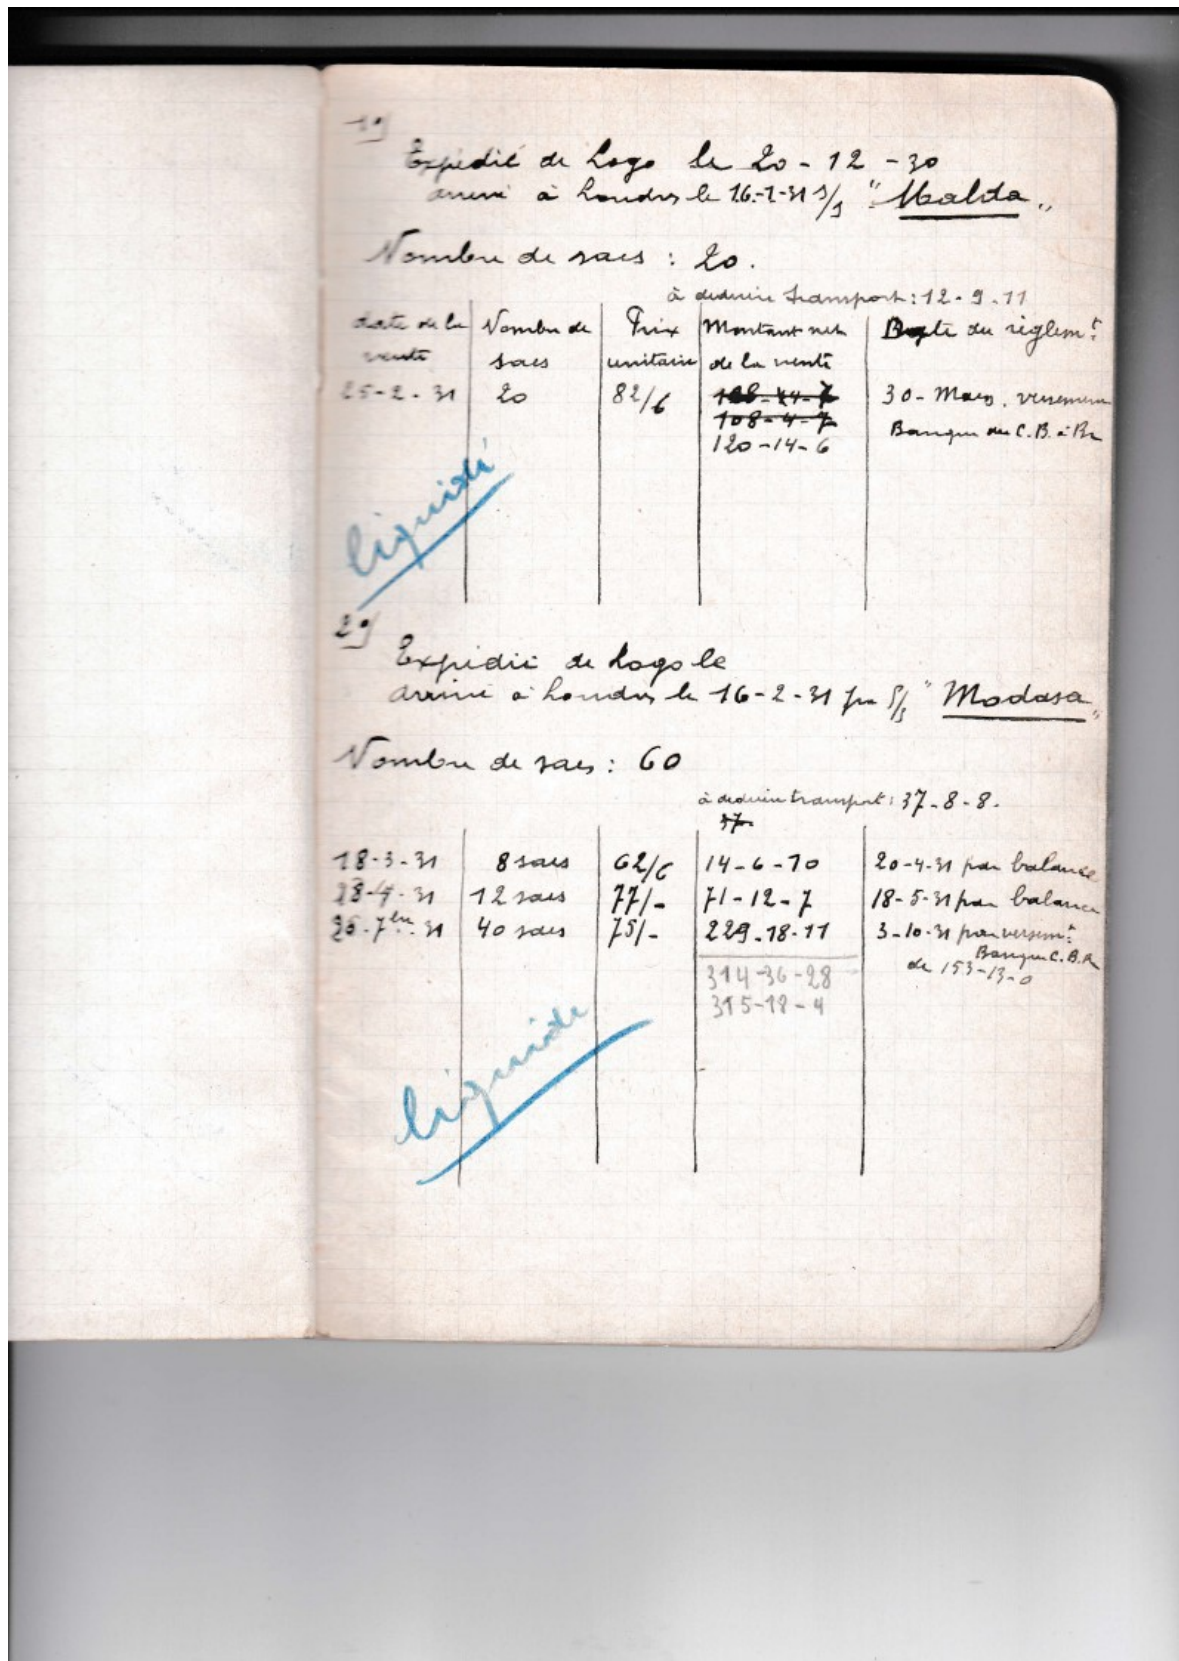 1º/
Expédié de Logo le 20-12-30
arrivé à Londres le 16-1-31 s/s "Malda"
Nombre de sacs : 20.
à déduire transport : 12-9-11
date de la vente | Nombre de sacs | Prix unitaire | Montant net de la vente | Date du règlemt
25-2-31 | 20 | 82/6 | 108-4-7 | 30-Mars. versement
120-14-6 | Banque du C.B. à
liquidé
2º/
Expédié de Logo le
arrivé à Londres le 16-2-31 par s/s "Modasa"
Nombre de sacs : 60
à déduire transport : 37-8-8.
37-
18-3-31 | 8 sacs | 62/6 | 14-6-10 | 20-4-31 par balance
28-4-31 | 12 sacs | 77/- | 71-12-7 | 18-5-31 par balance
26-7bre-31 | 40 sacs | 75/- | 229-18-11 | 3-10-31 par versemt
Banque C.B.R
de 153-13-0
314-36-28
315-18-4
liquidé